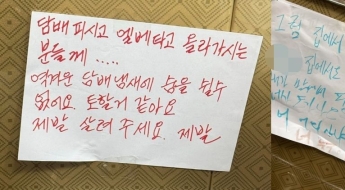 담배 피시고 엘베타고 올라가시는
분들께 .....
역겨운 담배 냄새에 숨을 쉴수
없어요. 토할거 같아요
제발 살려 주세요. 제발
그럼 집에서
집에서도